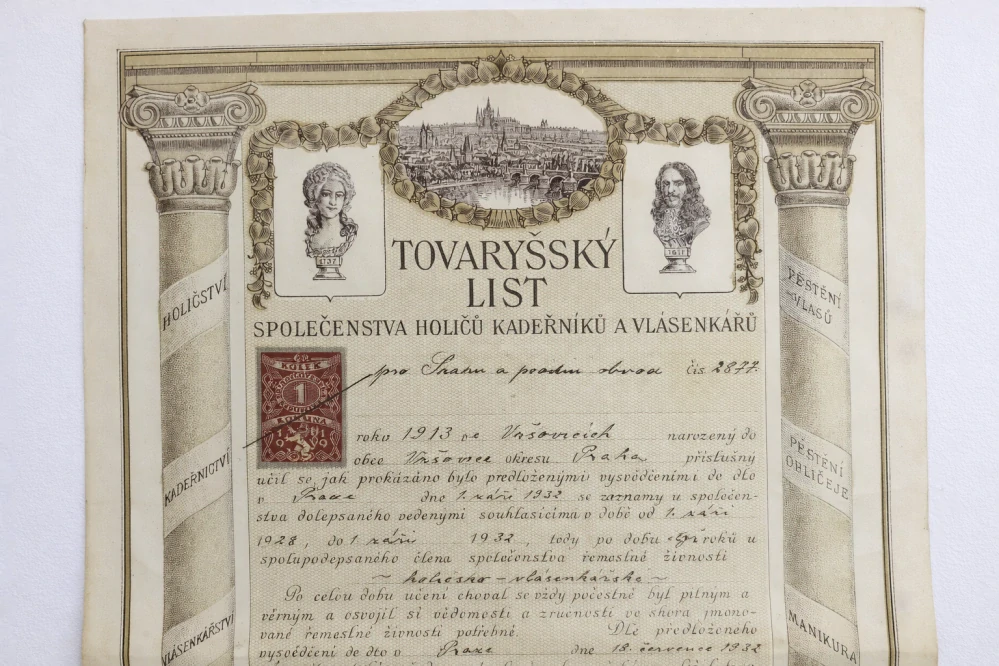 TOVARYŠSKÝ
LIST
SPOLEČENSTVA HOLIČŮ KADEŘNÍKŮ A VLÁSENKÁŘŮ
1757
1651
HOLIČSTVÍ
KADEŘNICTVÍ
VLÁSENKÁŘSTVÍ
PĚSTĚNÍ
VLASŮ
PĚSTĚNÍ
OBLIČEJE
MANIKURA
KOLEK
1
KORUNA
1919
pro Prahu a poadm. obvod čís. 2877.
roku 1913 ve Vršovicích narozený do
obce Vršovice okresu Praha příslušný
učil se jak prokázáno bylo předloženými vysvědčeními de dto
v Praze dne 1. září 1932 se záznamy u společen-
stva dolepsaného vedenými souhlasícima v době od 1. září
1928, do 1. září 1932, tedy po dobu roků u
spolupodepsaného člena společenstva řemeslné živnosti
~ holičsko - vlásenkářské ~
Po celou dobu učení choval se vždy počestně byl pilným a
věrným a osvojil si vědomosti a zručnosti ve shora jmeno-
vané řemeslné živnosti potřebné. Dle předloženého
vysvědčení de dto v Praze dne 18. července 1932